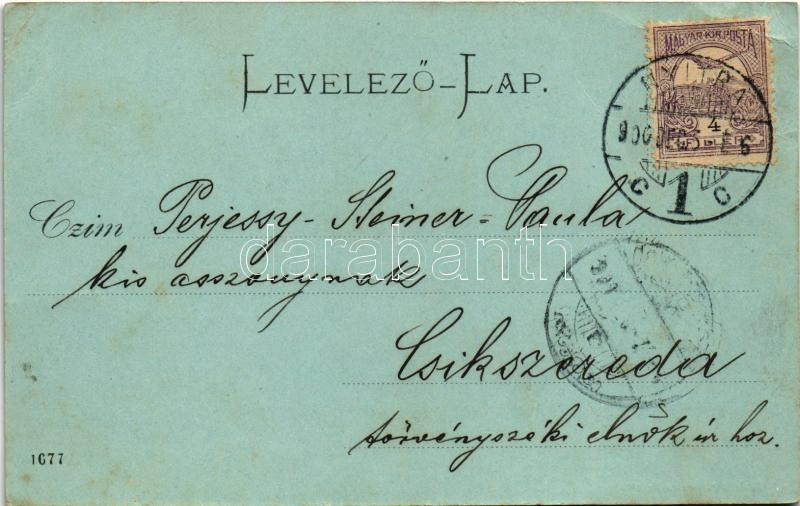 LEVELEZŐ-LAP.
MAGYAR KIR. POSTA
NYITRA
900 DEC
4
6
C 1 C
Czim Perjessy-Steiner-Paula
darabanth
kis asszonynak
Csikszereda
törvényszéki elnök úr hoz.
1677